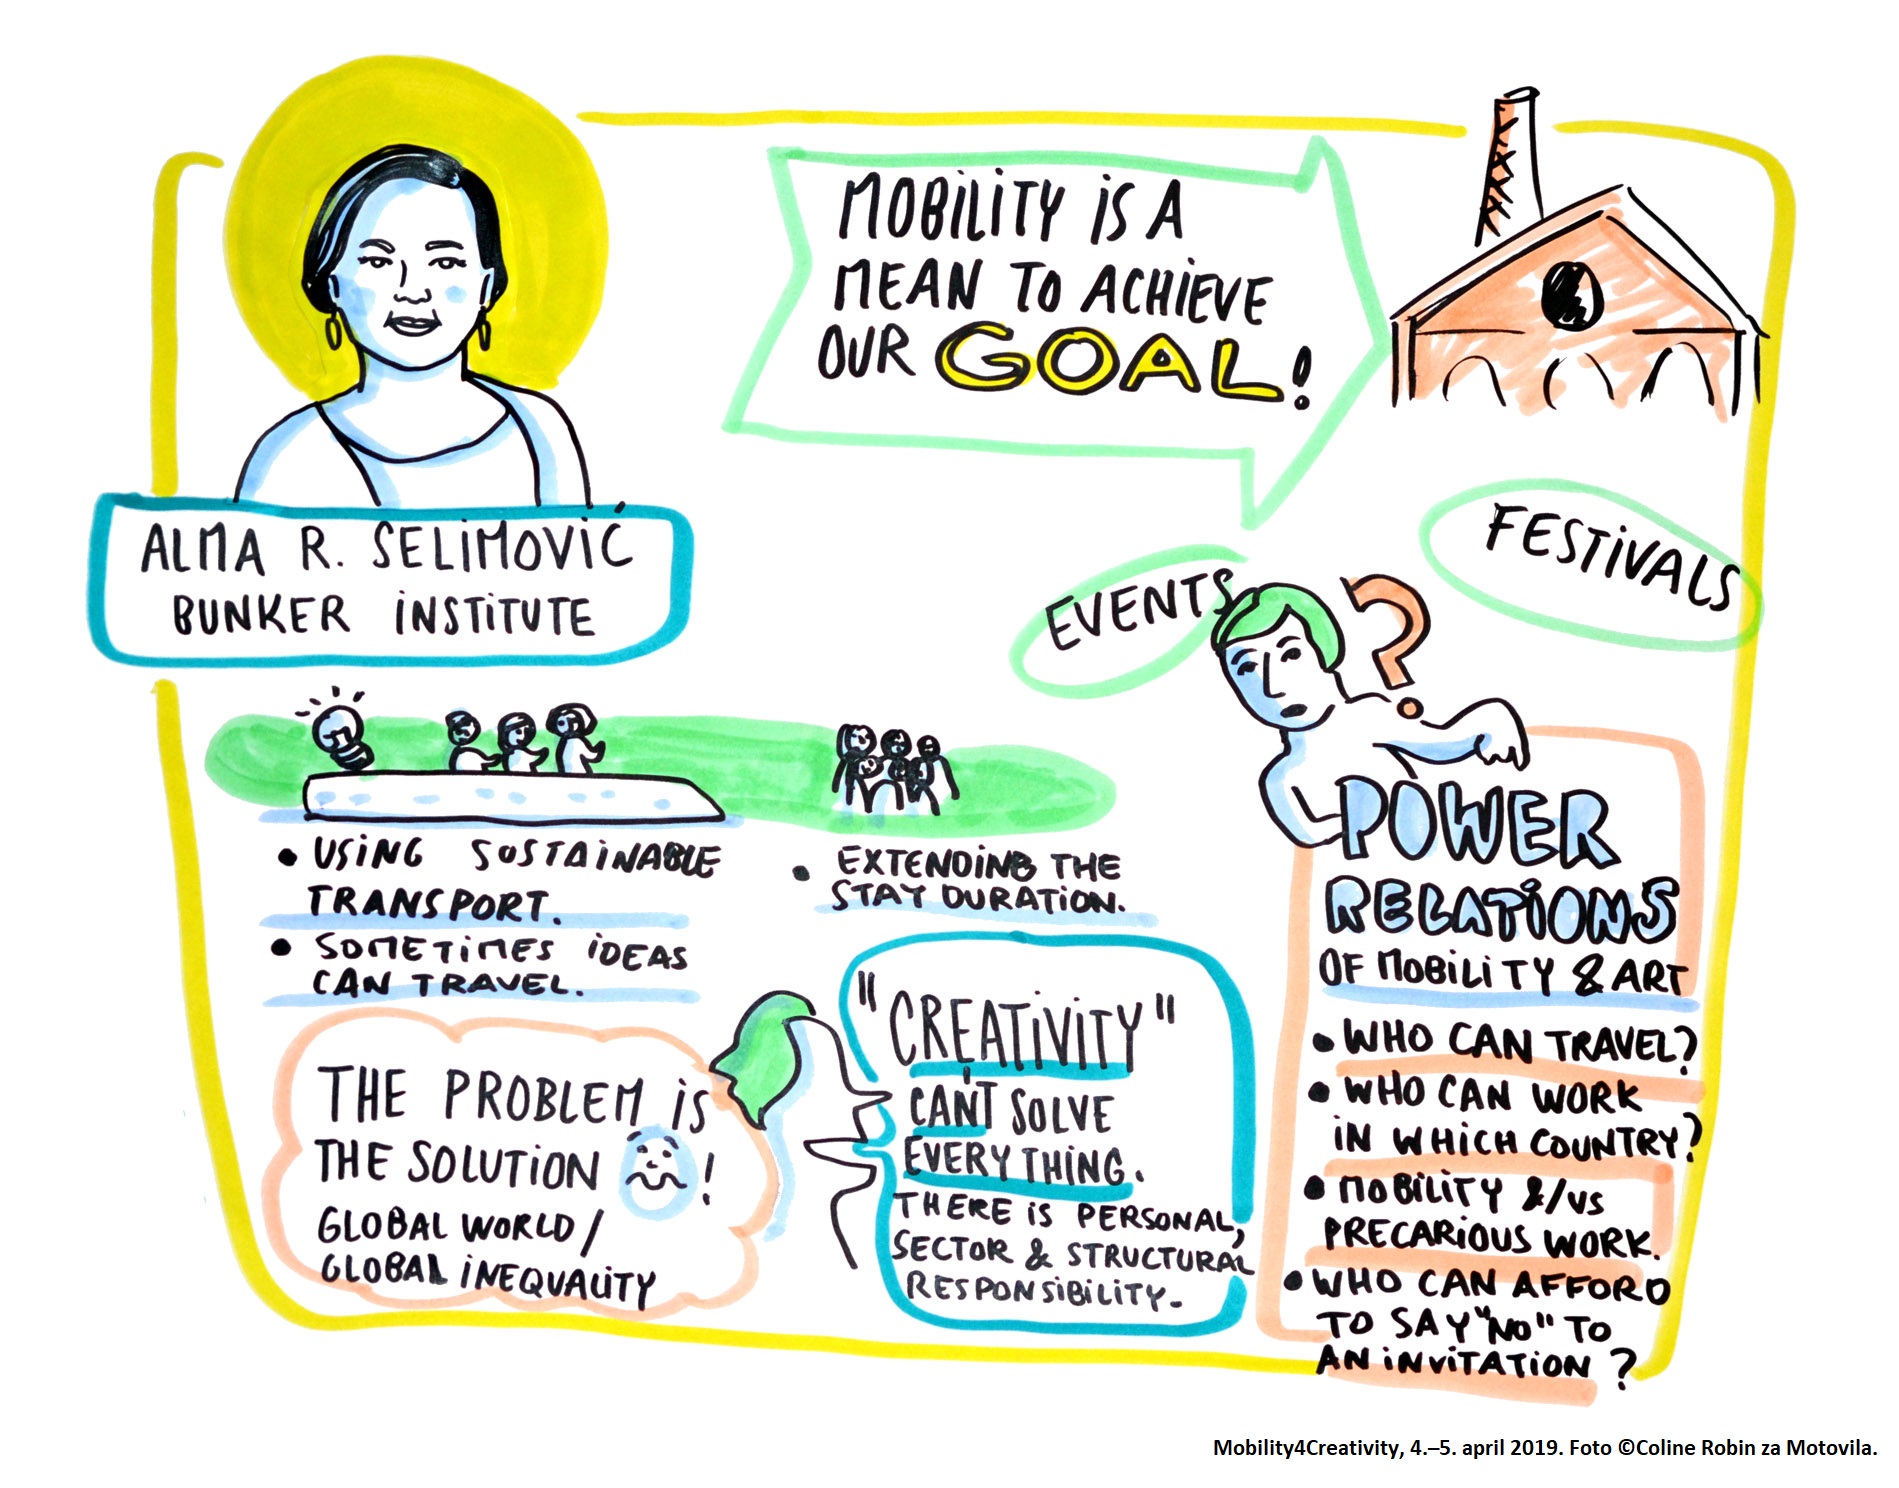 MOBILITY IS A
MEAN TO ACHIEVE
OUR GOAL!
ALMA R. SELIMOVIĆ
BUNKER INSTITUTE
EVENTS
FESTIVALS
• USING SUSTAINABLE
TRANSPORT.
• SOMETIMES IDEAS
CAN TRAVEL.
• EXTENDING THE
STAY DURATION.
THE PROBLEM IS
THE SOLUTION !
GLOBAL WORLD/
GLOBAL INEQUALITY
"CREATIVITY"
CAN'T SOLVE
EVERYTHING.
THERE IS PERSONAL,
SECTOR & STRUCTURAL
RESPONSIBILITY.
?
POWER
RELATIONS
OF MOBILITY & ART
• WHO CAN TRAVEL?
• WHO CAN WORK
IN WHICH COUNTRY?
• MOBILITY &/VS
PRECARIOUS WORK.
• WHO CAN AFFORD
TO SAY "NO" TO
AN INVITATION?
Mobility4Creativity, 4.–5. april 2019. Foto ©Coline Robin za Motovila.